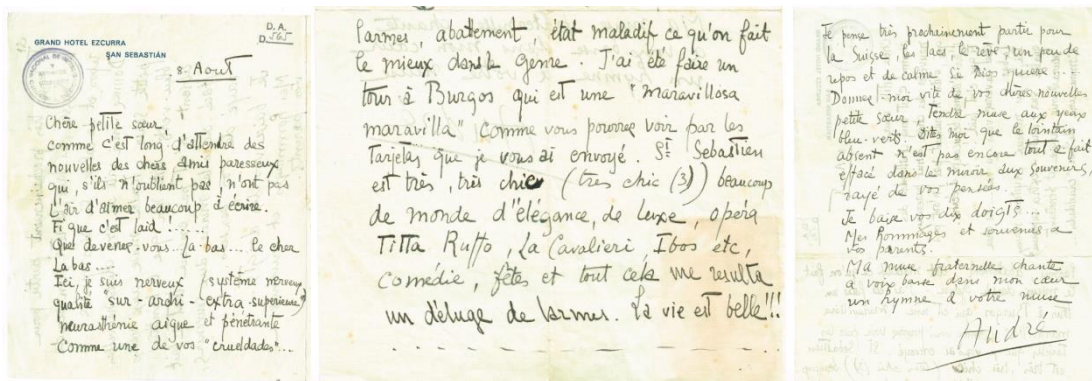 GRAND HOTEL EZCURRA
SAN SEBASTIÁN
D. A.
D. 565
8 Aout
Chère petite sœur,
comme c'est long d'attendre des
nouvelles des chers amis paresseux
qui, s'ils n'oublient pas, n'ont pas
l'air d'aimer beaucoup à écrire.
Fi que c'est laid !.......
Que devenez-vous.. La-bas... le cher
La bas....
Ici, je suis nerveux (système nerveux
qualité "sur-archi-extra-supérieure")
neurasthénie aigue et pénétrante
comme une de vos "crueldades"...
larmes, abattement état maladif ce qu'on fait
le mieux dans le genre. J'ai été faire un
tour à Burgos qui est une "maravillosa
maravilla" comme vous pourrez voir par les
Tarjetas que je vous ai envoyé. St Sebastien
est très, très chic (très chic (3)) beaucoup
de monde d'élégance, de luxe, opéra
Titta Ruffo, La Cavalieri, Ibos etc,
comédie, fêtes et tout cela me resulta
un déluge de larmes. La vie est belle!!
Je pense très prochainement partir pour
la Suisse, les lacs, le rêve, un peu de
repos et de calme. Si Dios quiere....
Donnez-moi vite de vos chères nouvelles
petite sœur, Tendre muse aux yeux
bleu-verts. Dites moi que le lointain
absent n'est pas encore tout à fait
effacé dans le miroir, aux souvenirs,
rayé de vos pensées.
Je baise vos dix doigts...
Mes hommages et souvenirs a
vos parents.
Ma muse fraternelle chante
a voix basse dans mon cœur
un hymne a votre muse
André